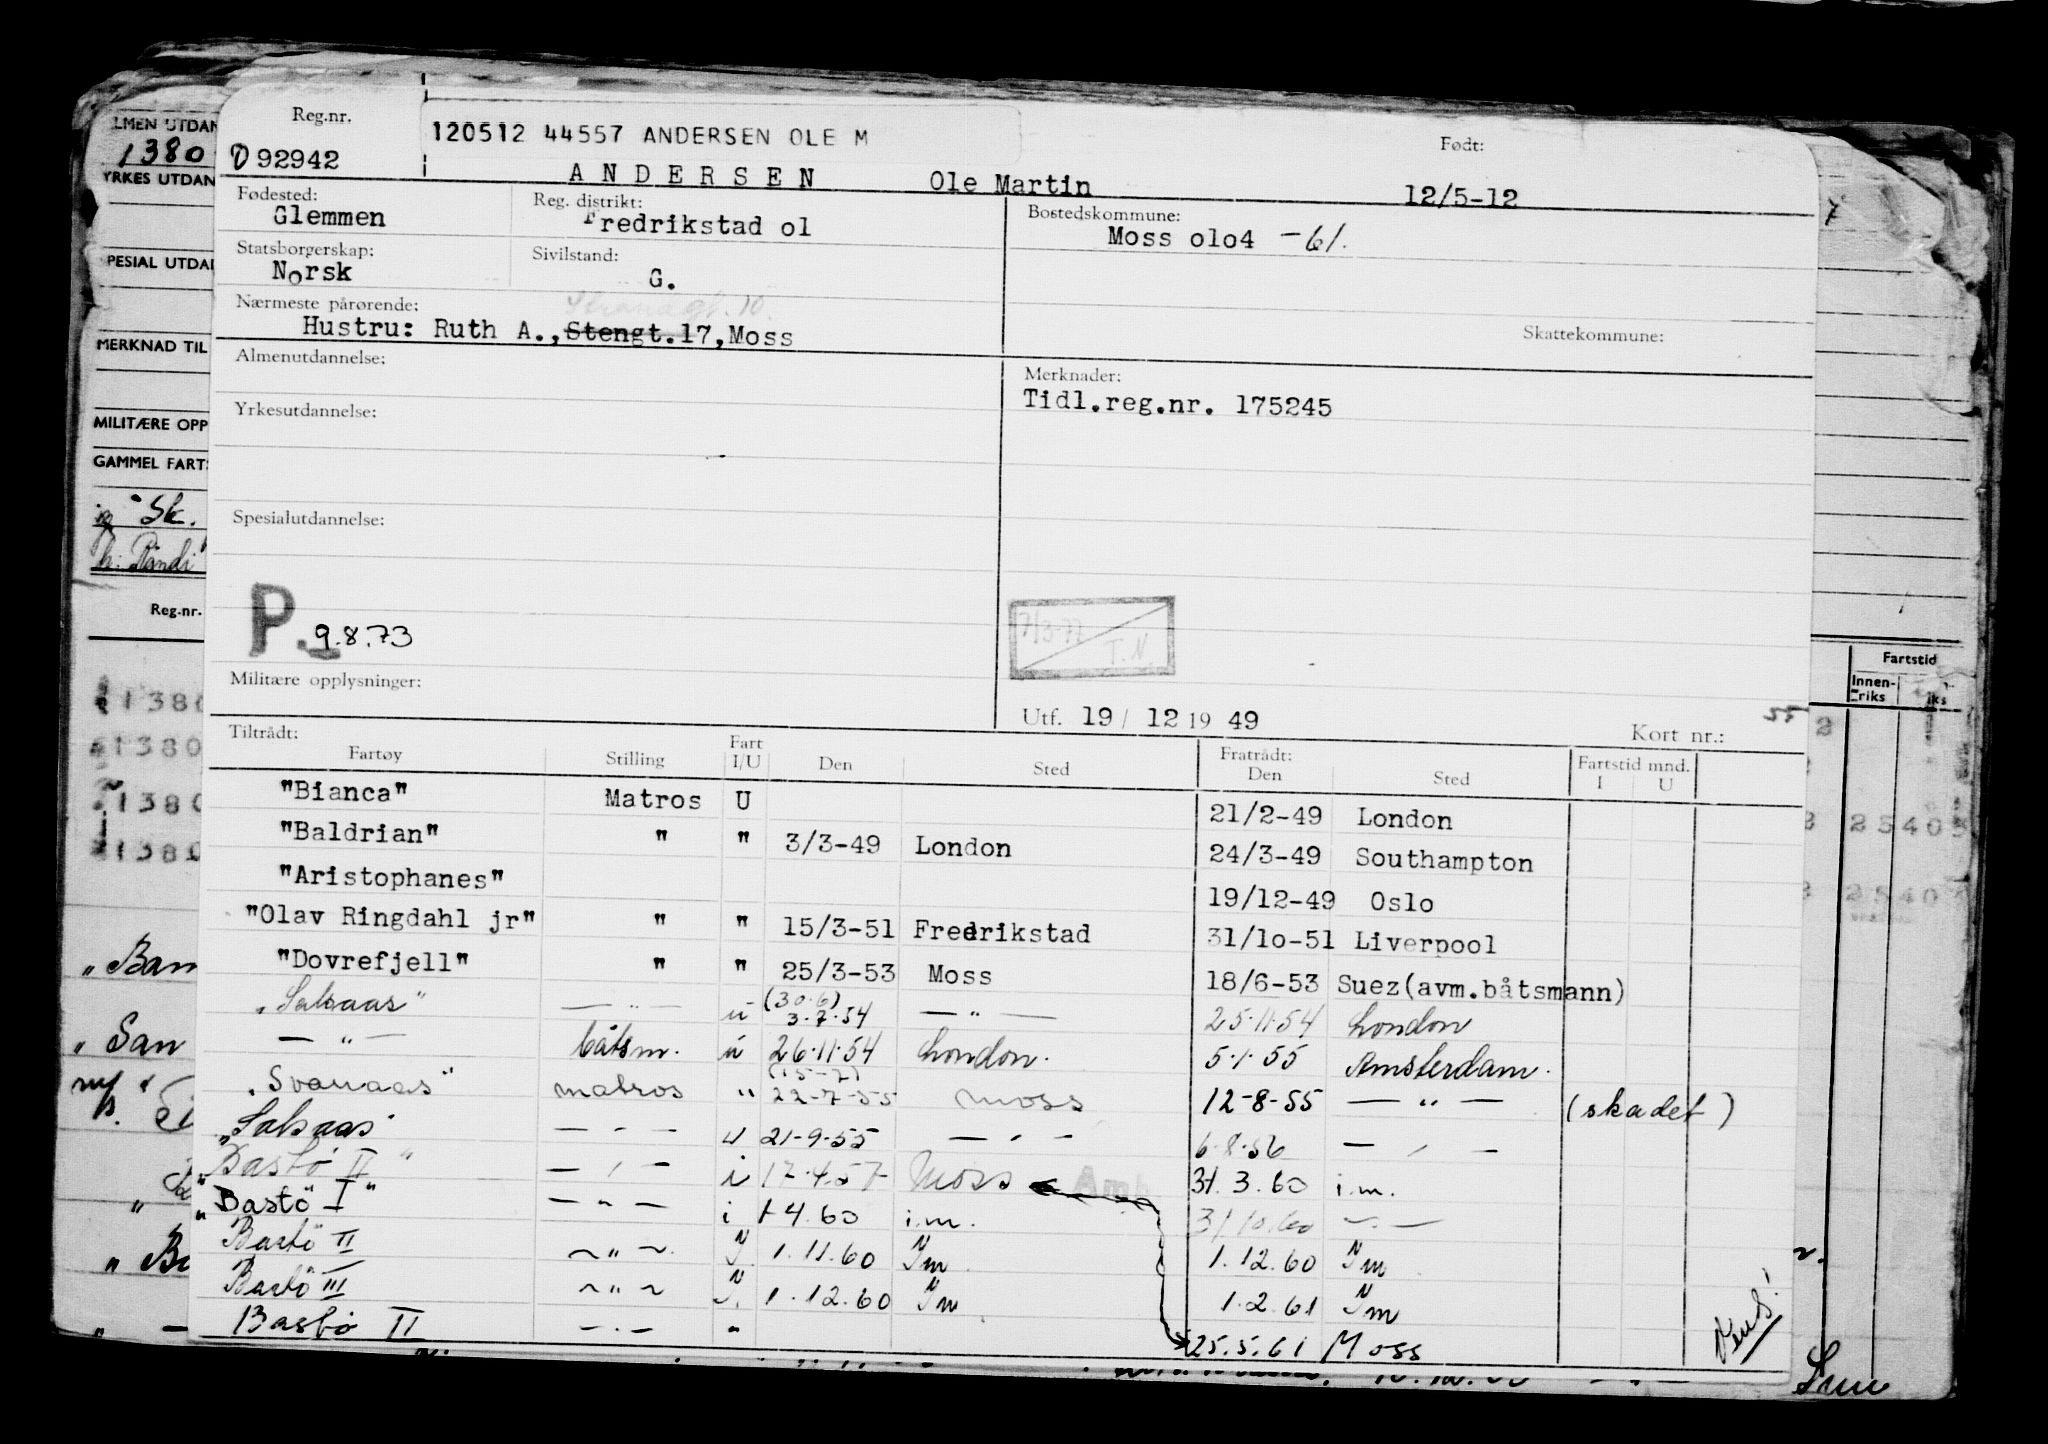 Reg.nr.
120512 44557 ANDERSEN OLE M
Født:
092942
ANDERSEN Ole Martin 12/5-12
Fødested: Reg. distrikt: Bostedskommune:
Glemmen Fredrikstad ol Moss olo4 -61.
Statsborgerskap: Sivilstand:
Norsk G.
Nærmeste pårørende: Strandgt. 10.
Hustru: Ruth A., Stengt.17, Moss
Skattekommune:
Almenutdannelse: Merknader:
Tidl.reg.nr. 175245
Yrkesutdannelse:
Spesialutdannelse:
P. 9.8.73
7/3-77 T.N.
Militære opplysninger:
Utf. 19/ 12 19 49 Kort nr.:
Tiltrådt: Fratrådt: Fartstid mnd.
Fartøy Stilling Fart I/U Den Sted Den Sted I U
"Bianca" Matros U 21/2-49 London
"Baldrian" " " 3/3-49 London 24/3-49 Southampton
"Aristophanes" 19/12-49 Oslo
"Olav Ringdahl jr" " " 15/3-51 Fredrikstad 31/lo-51 Liverpool
"Dovrefjell" " " 25/3-53 Moss 18/6-53 Suez(avm.båtsmann)
"Salsaas" — " — u (30.6) 3.7.54 — " — 25.11.54 London
— " — båtsm. u 26.11.54 London. 5.1.55 Amsterdam.
"Svanaas" matros " (15-7) 22-7-55 Moss 12-8-55 — " — (skadet)
"Salsaas" — " — u 21-9-55 — " — 6.8.56 — " —
"Bastø II" — " — i 17.4.57 Moss 31.3.60 i.m.
"Bastö I" — " — i 1-4.60 i.m. 31/10.60 — " —
Bastö II — " — I. 1.11.60 Im 1.12.60 Im
Bastö III — " — I. 1.12.60 Im 1.2.61 Im
Bastö II — " — " 25.5.61 Moss
Vend!
1380
MERKNAD TIL
Reg.nr.
Fartstid
Innen-
riks